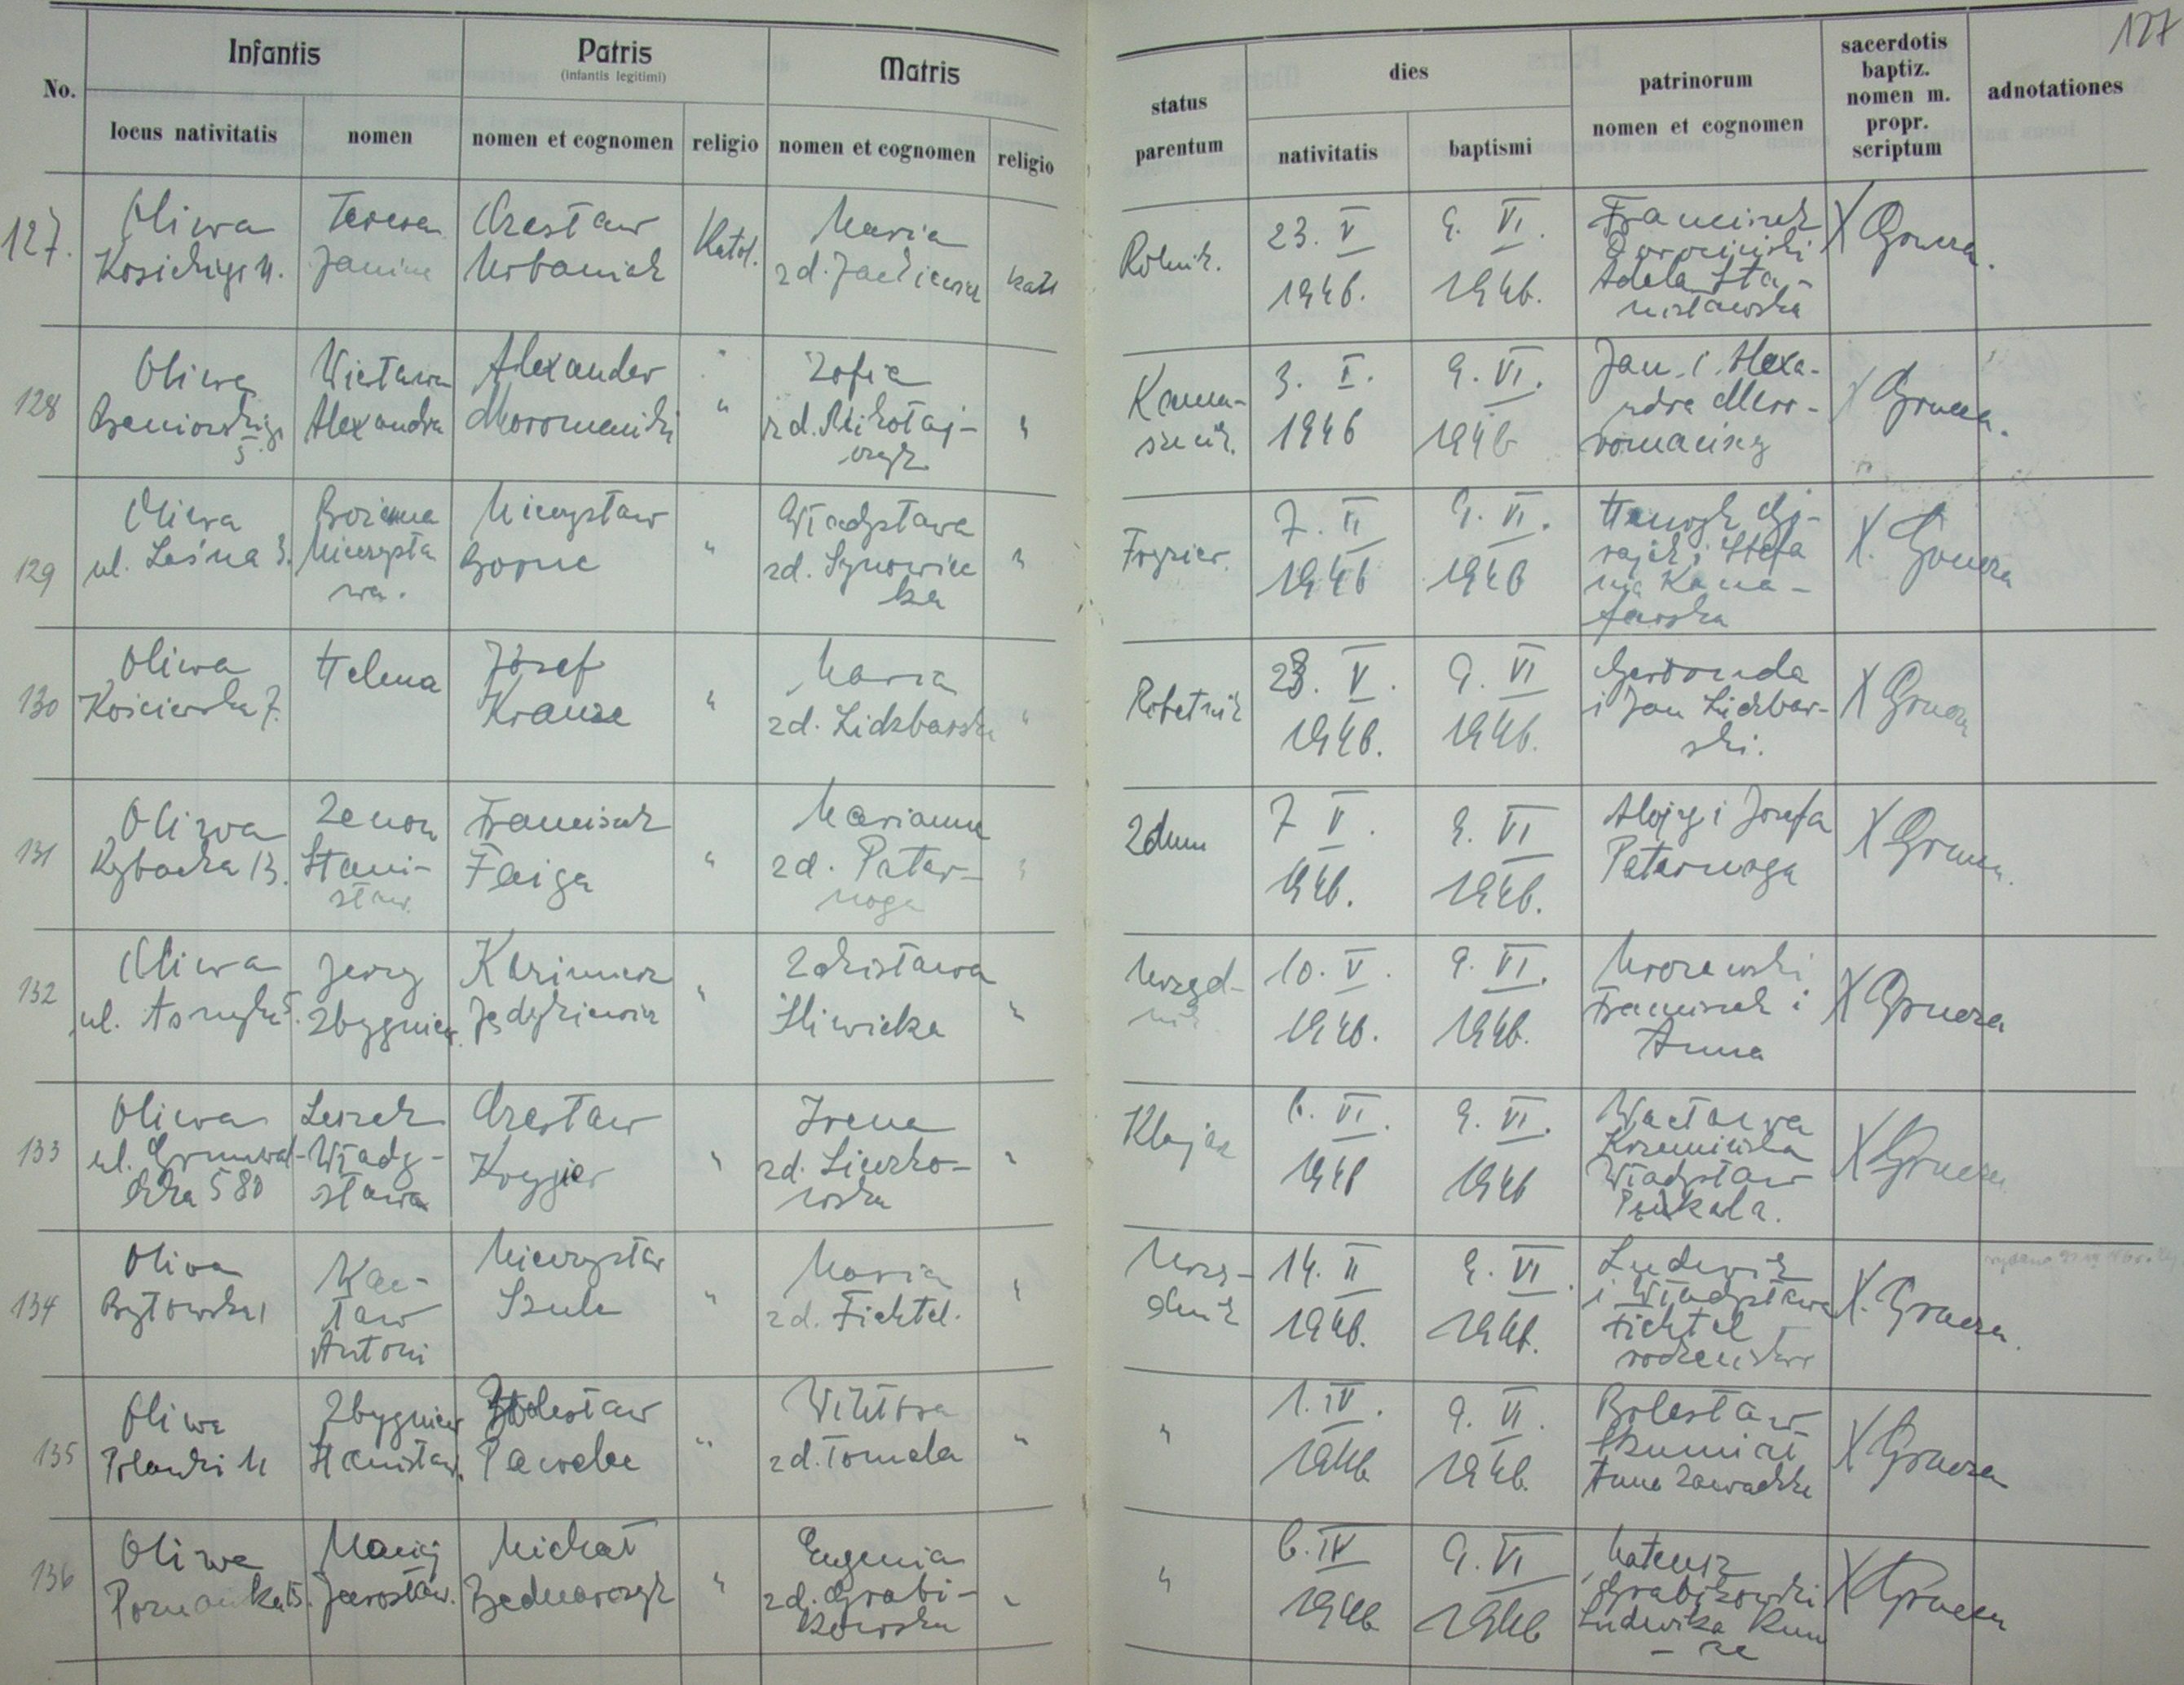 127
No.
Infantis
locus nativitatis
nomen
Patris
(infantis legitimi)
nomen et cognomen
religio
Matris
nomen et cognomen
religio
status
parentum
dies
nativitatis
baptismi
patrinorum
nomen et cognomen
sacerdotis
baptiz.
nomen m.
propr.
scriptum
adnotationes
127.
Oliwa
Teresa
Janina
Czesław
Urbaniak
Katol.
Maria
zd.
Rolnik.
23. V
1946.
9. VI.
1946.
Franciszek
Adela Sta-
nisławska
X Grucza.
128
Oliwa
Beniowskiego
5.
Wiesława
Alexandra
Alexander
"
Zofia
zd. Mikołaj-
czyk
"
Kama-
sznik.
3. I.
1946
9. VI.
1946
Jan i Alexa-
ndra
X Grucza.
129
Oliwa
ul. Leśna 3.
Bożena
Mieczysła
wa.
Mieczysław
"
Władysława
zd. Synowiec
ka
"
Fryzier.
7. II
1946
9. VI.
1946
Henryk
i Stefa
nia
X. Grucza
130
Oliwa
7.
Helena
Józef
Krauze
"
Maria
zd. Lidzbarska
"
Robotnik
28. V.
1946.
9. VI
1946.
i Jan Lidzbar-
ski.
X Grucza
131
Oliwa
Rybacka 13.
Zenon
Stani-
sław.
Franciszek
Feiga
"
Marianna
zd. Pater-
noga
"
Zdun
7 V.
1946.
9. VI
1946.
Alojzy i Józefa
Paternoga
X Grucza.
132
Oliwa
ul. Asnyka 5.
Jerzy
Zbygniew.
Kazimierz
Jędykiewicz
"
Zdzisława
Śliwicka
"
Urzęd-
nik
10. V.
1946.
9. VI.
1946.
Mrozewski
Franciszek i
Anna
X Grucza
133
Oliwa
ul. Grunwal-
dzka 580
Leszek
Włady-
sława
Czesław
Kryger
"
Irena
zd.
"
6. VI.
1946
9. VI.
1946
Wacława
Krzemińska
Władysław
Pukala.
X Grucza
134
Oliwa
Bytowska 1
Wac-
ław
Antoni
Mieczysław
Szulc
"
Maria
zd. Fichtel.
"
Urzę-
dnik
14. II
1946.
9. VI.
1946.
Ludwik
i Władysława
Fichtel
rodzeństwo
X. Grucza.
135
Oliwa
Polanki 11
Zbygniew
Stanisław.
Bolesław
Pawelec
"
Wiktoria
zd. Tomala
"
"
1. IV.
1946
9. VI.
1946.
Bolesław
Anna Zawadzka
X Grucza
136
Oliwa
Poznańska 15.
Maciej
Jarosław.
Michał
Bednarczyk
"
Eugenia
zd. Grabi-
kowska
"
"
6. IV
1946
9. VI
1946
Mateusz
Grabikowski
Ludwika
X Grucza